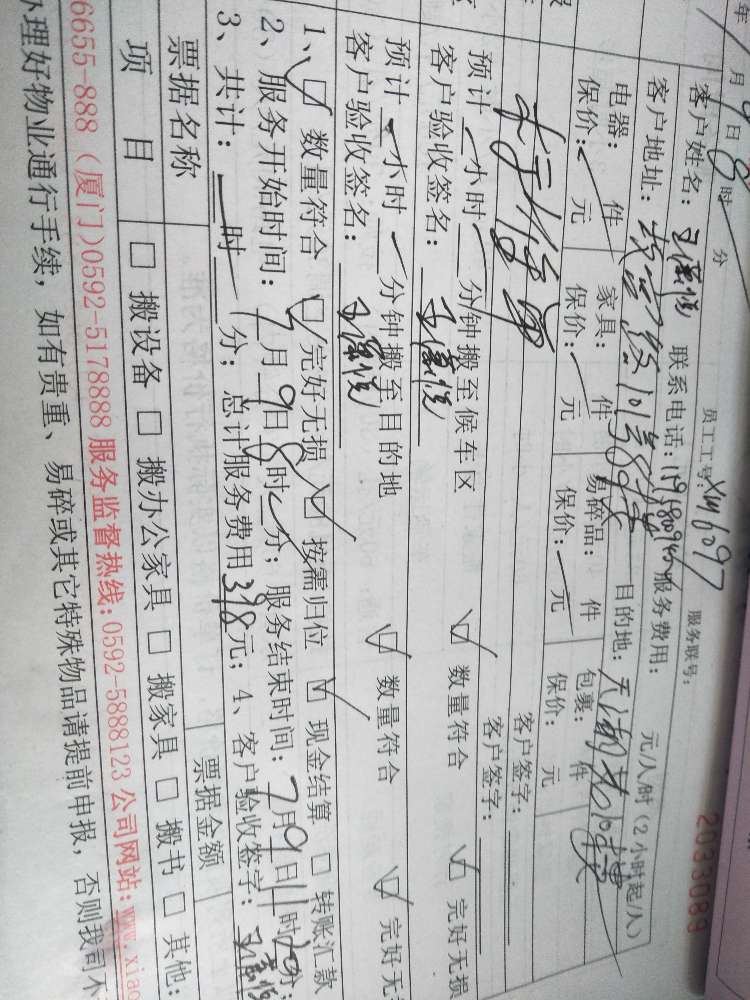 年 7月9日8时 分 员工工号:XM6097 服务联号: 2033083
客户姓名: 联系电话: 服务费用: 元/人/时(2小时起/人)
客户地址: 目的地:
电器: 件 家具: 件 易碎品: 件 包裹: 件
保价: 元 保价: 元 保价: 元 保价: 元
客户签字:
客户签字:
预计 小时 分钟搬至候车区 数量符合 完好无损
客户验收签名:
预计 小时 分钟搬至目的地 数量符合 完好无
客户验收签名:
1、 数量符合 完好无损 按需归位 现金结算 转账汇款
2、服务开始时间:7月9日8时 分;服务结束时间:7月9日11时20分;
3、共计: 时 分;总计服务费用398元;4、客户验收签字:
票据名称 票据金额
项 目 搬设备 搬办公家具 搬家具 搬书 其他:
6655-888(厦门)0592-5178888 服务监督热线:0592-5888123 公司网站:www.xiao
办理好物业通行手续,如有贵重、易碎或其它特殊物品请提前申报,否则我司不